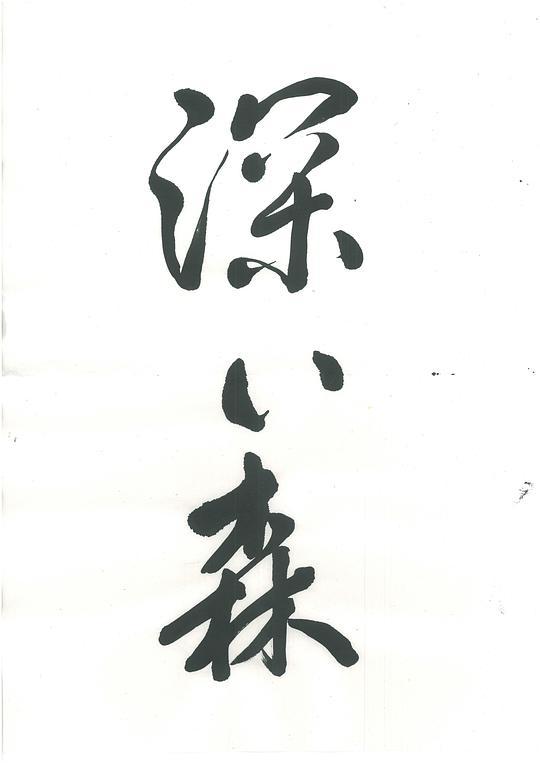 深い森